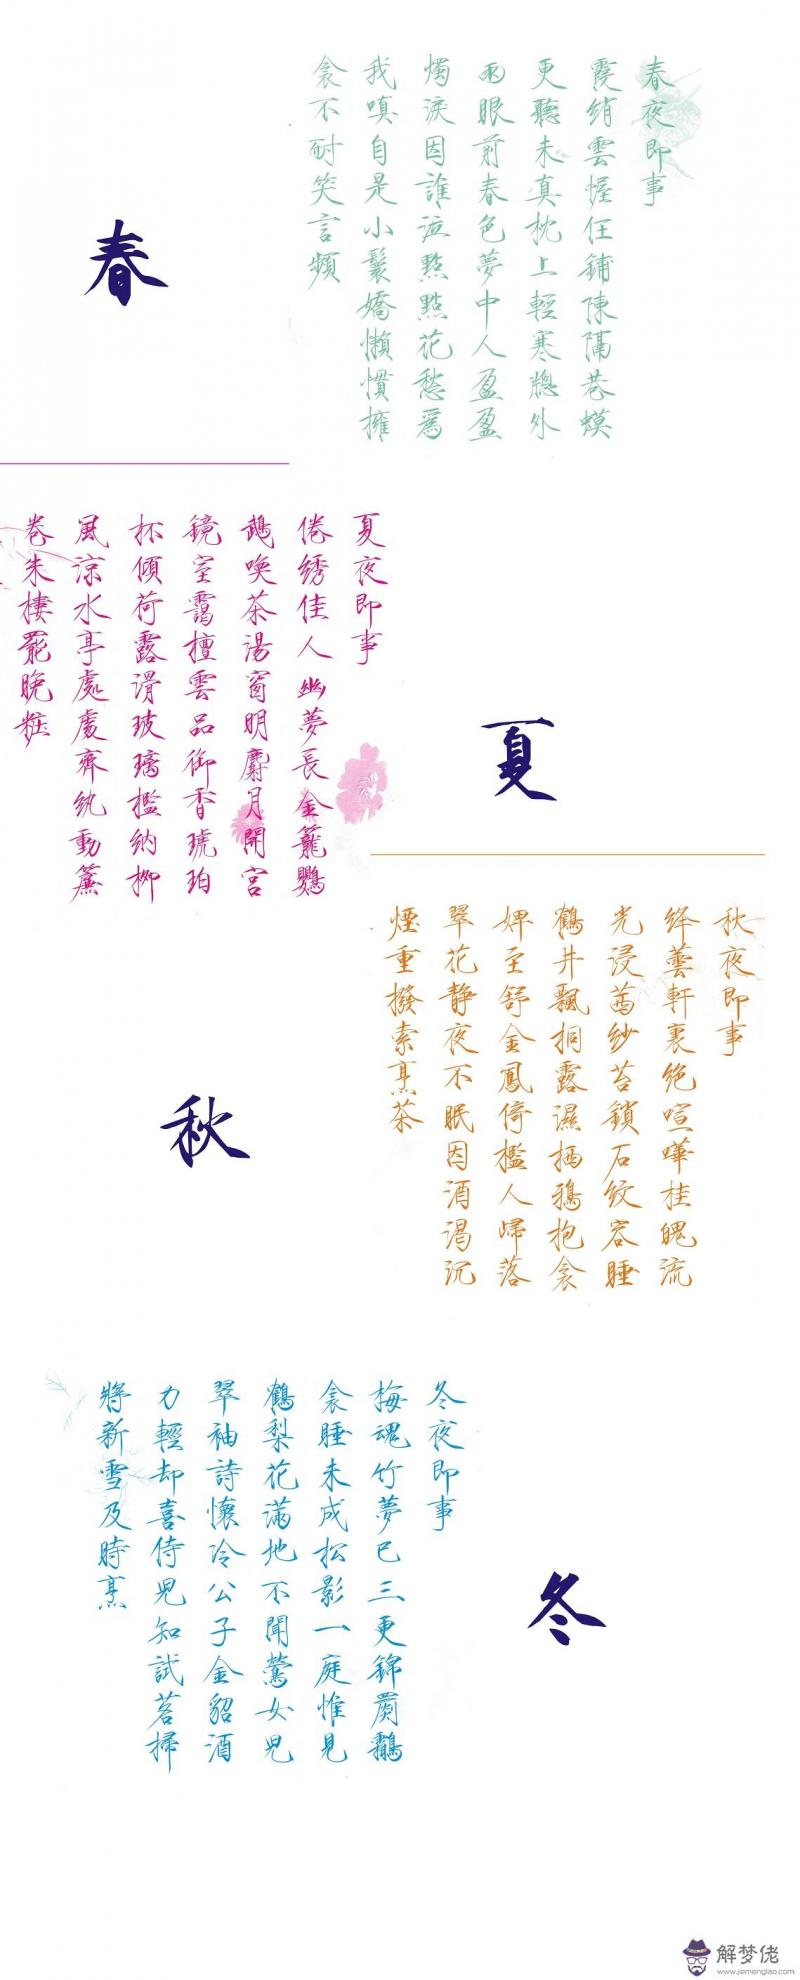 春
春夜即事
霞綃雲幄任鋪陳隔巷蟆
更聽未真枕上輕寒牕外
雨眼前春色夢中人盈盈
燭淚因誰泣點點花愁爲
我嗔自是小鬟嬌懶慣擁
衾不耐笑言頻
夏
夏夜即事
倦绣佳人幽夢長金籠鸚
鵡喚茶湯窗明麝月開宮
鏡室靄檀雲品御香琥珀
杯傾荷露滑玻璃檻納柳
風涼水亭處處齊紈動簾
卷朱樓罷晚粧
秋
秋夜即事
絳蕓軒裏絕喧嘩桂魄流
光浸茜紗苔鎖石紋容睡
鶴井飄桐露濕栖鴉抱衾
婢至舒金鳳倚檻人歸落
翠花靜夜不眠因酒渴沉
煙重撥索烹茶
冬
冬夜即事
梅魂竹夢已三更錦罽鸘
衾睡未成松影一庭惟見
鶴梨花滿地不聞鶯女兒
翠袖詩懷冷公子金貂酒
力輕却喜侍兒知試茗掃
將新雪及時烹
解梦佬
www.jiemenglao.com